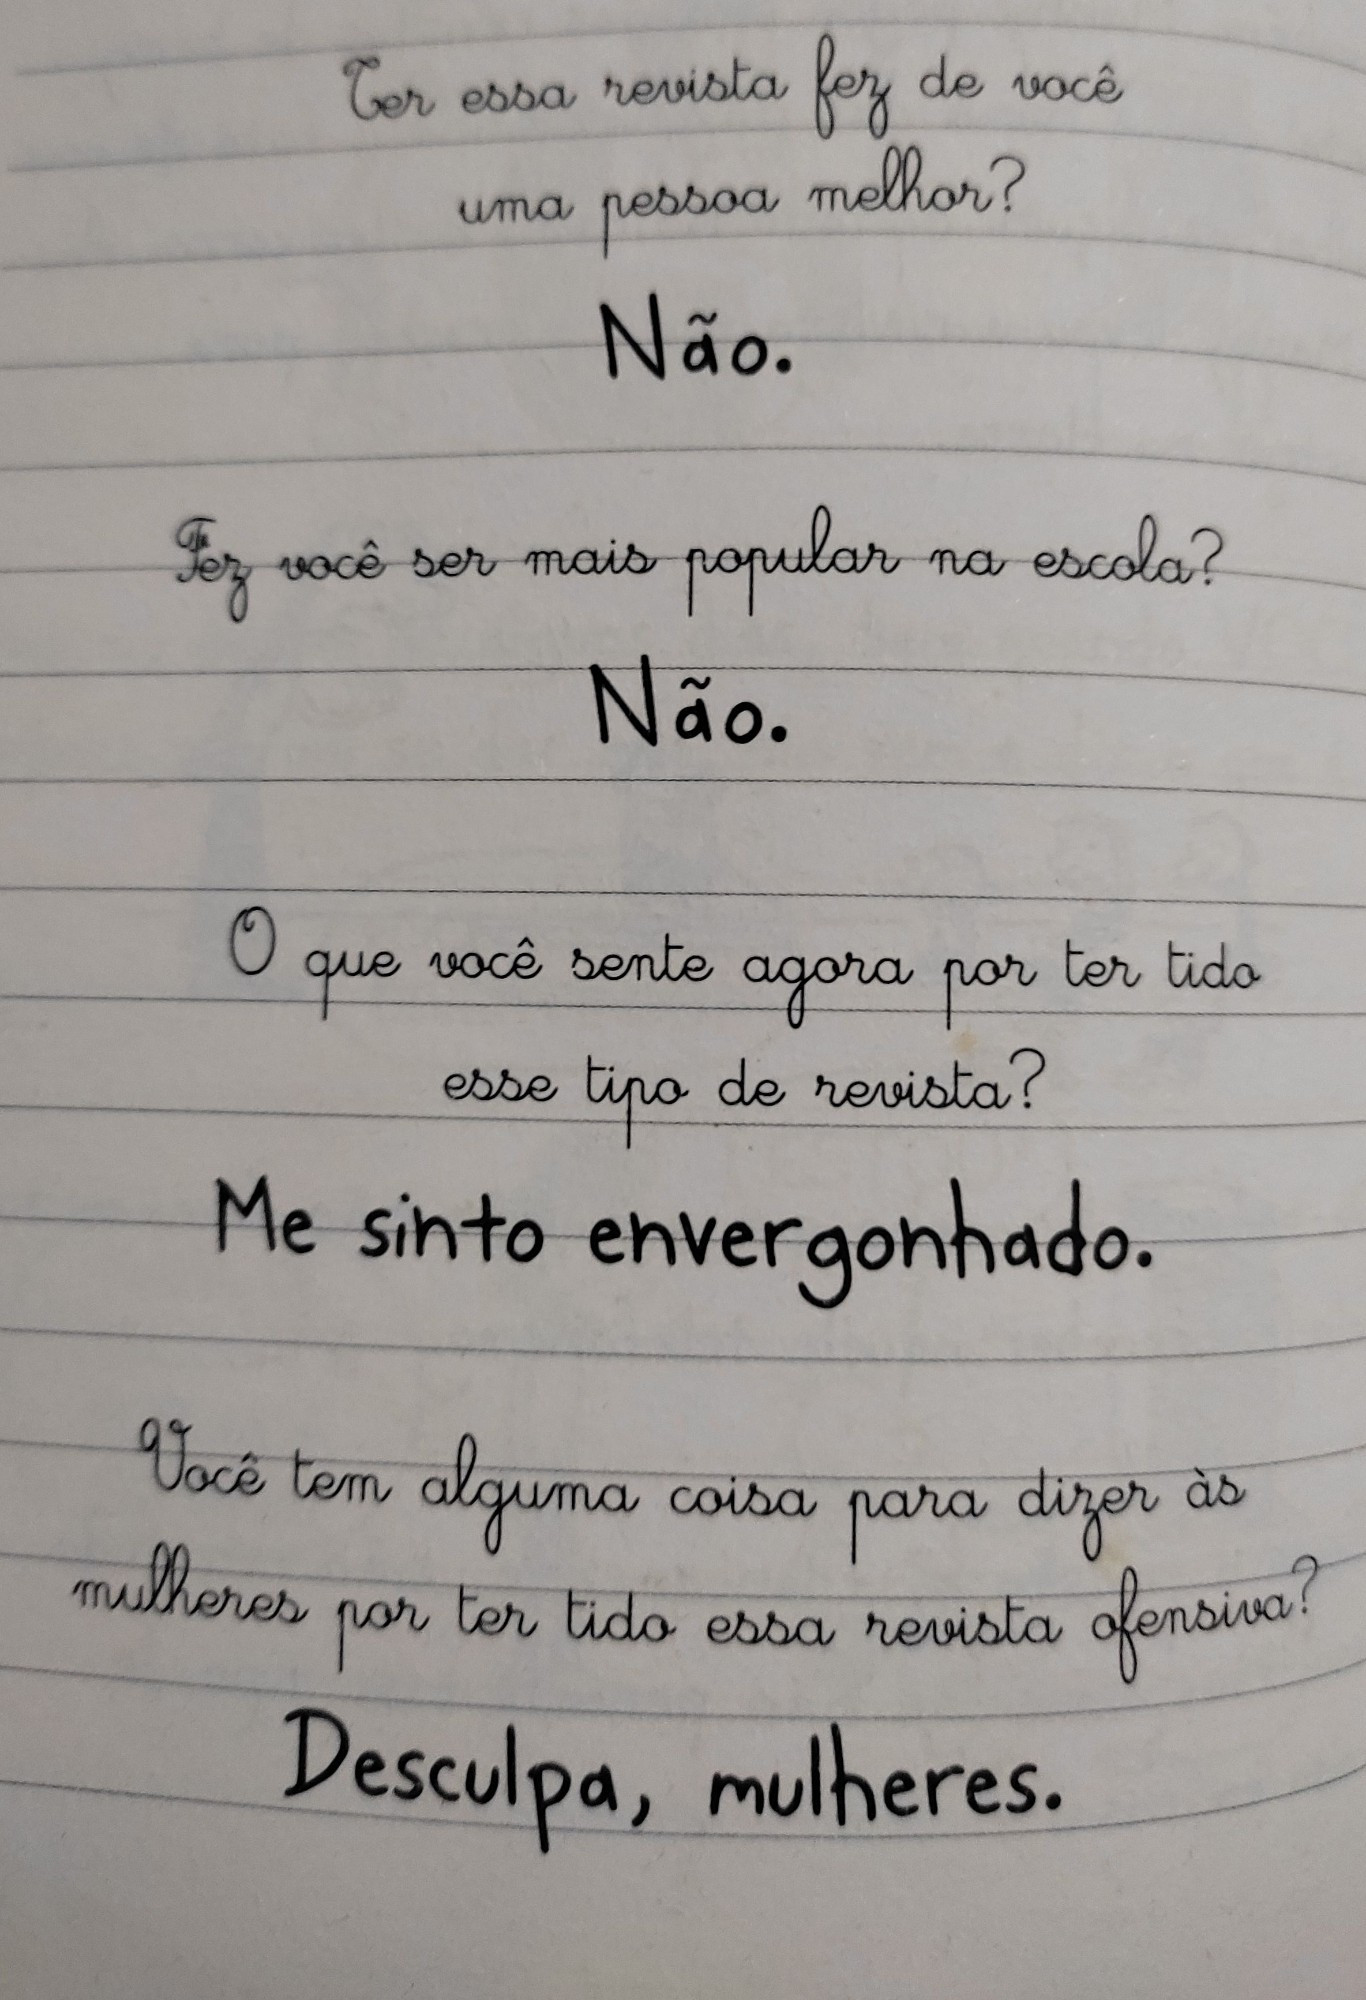 Ter essa revista fez de você
uma pessoa melhor?
Não.
Fez você ser mais popular na escola?
Não.
O que você sente agora por ter tido
esse tipo de revista?
Me sinto envergonhado.
Você tem alguma coisa para dizer às
mulheres por ter tido essa revista ofensiva?
Desculpa, mulheres.